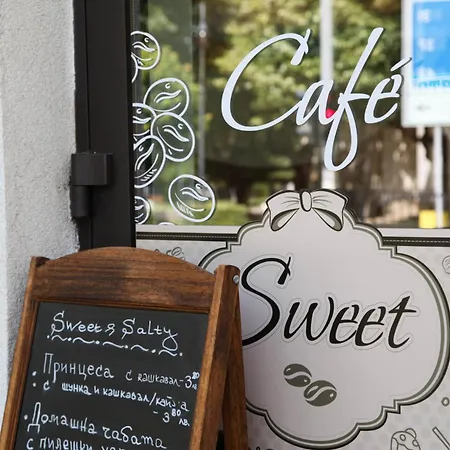 Café
Sweet
Sweet & Salty
Принцеса
с кашкавал - 3
с шунка и кашкавал/
- 3 80 лв.
Домашна чабата
с пилешки